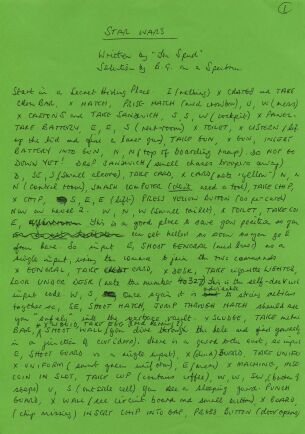 ①
STAR WARS
Written by "Jon Spud"
Solution by E.G. on a Spectrum
Start in a Secret Hiding Place. E (nothing) X CRATES and TAKE
CROWBAR, X HATCH, PRISE HATCH (need crowbar), U, W (mess)
X CARTONS and TAKE SANDWICH, S, S, W (cockpit) X PANEL
TAKE BATTERY, E, E, S (restroom) X TOILET, X CISTERN (lift
up the lid and find a laser gun), TAKE GUN, X GUN, INSERT
BATTERY INTO GUN, N, N (top of boarding ramp). DO NOT GO
DOWN YET! DROP SANDWICH (small chases troopers away)
D, SE, S (small alcove), TAKE CARD, X CARD (note - yellow -) N, N
N (control room), SMASH COMPUTER (don't need a tool), TAKE CHIP,
X CHIP, S, E, E (lift) PRESS YELLOW BUTTON (as per card)
Now on level 2. W, N, W (small toilet), X TOILET, TAKE COIN
E, this is a good place to save your position as you
can get killed as soon as you go E
from here. So input E, SHOOT GENERAL (need laser) as a
single input, using the comma to join the two commands
X GENERAL, TAKE CARD, X DESK, TAKE cigarette LIGHTER,
LOOK UNDER DESK (note the number 10327) this is the self-destruct
input code. W, S once again it is strung actions
together ie, SE, SHOOT HATCH, JUMP THROUGH HATCH should see
you safely into the garbage vault. X SLUDGE, TAKE metal
BAR, SHOOT WALL (you dive through the hole and find yourself
in a junction of corridors). there is a guard to the east, so input
E, SHOOT GUARD as a single input), X (dead) GUARD, TAKE UNIFORM
X UNIFORM (smart green uniform), E (mess) X MACHINE, INSERT
COIN IN SLOT, TAKE CUP (contains coffee), W, W, S
S (outside cell) You see a sleeping guard. PUNCH
GUARD, X WALL (see circuit board and small button) X BOARD,
(chip missing) INSERT CHIP INTO GAP, PRESS BUTTON (door opens)